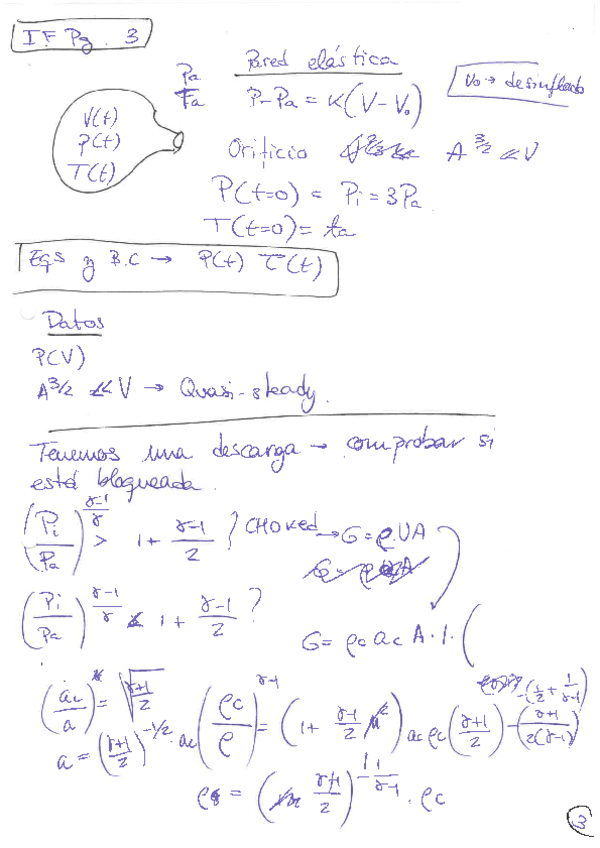 IF Pg. 3
Pa
Ta
Pared elástica
P-Pa = K(V-V₀)
V₀ → desinflado
V(t)
P(t)
T(t)
Orificio A^3/2 ≪ V
P(t=0) = Pi = 3Pa
T(t=0) = ta
Eqs y B.C → P(t) T(t)
Datos
P(V)
A^3/2 ≪ V → Quasi-steady.
Tenemos una descarga → comprobar si
está bloqueada.
(Pi/Pa)^((γ-1)/γ) > 1 + (γ-1)/2 } CHOKED → G = ρUA
(Pi/Pa)^((γ-1)/γ) < 1 + (γ-1)/2 ?
G = ρc ac A · 1 · (
(ac/a) = √((γ+1)/2)
(ρc/ρ)^(γ-1) = (1 + (γ-1)/2)
-(1/2 + 1/(γ-1))
a = ((γ+1)/2)^(-1/2) · ac
ac ρc ((γ+1)/2)^-((γ+1)/(2(γ-1)))
ρ = ((γ+1)/2)^(-1/(γ-1)) · ρc
3